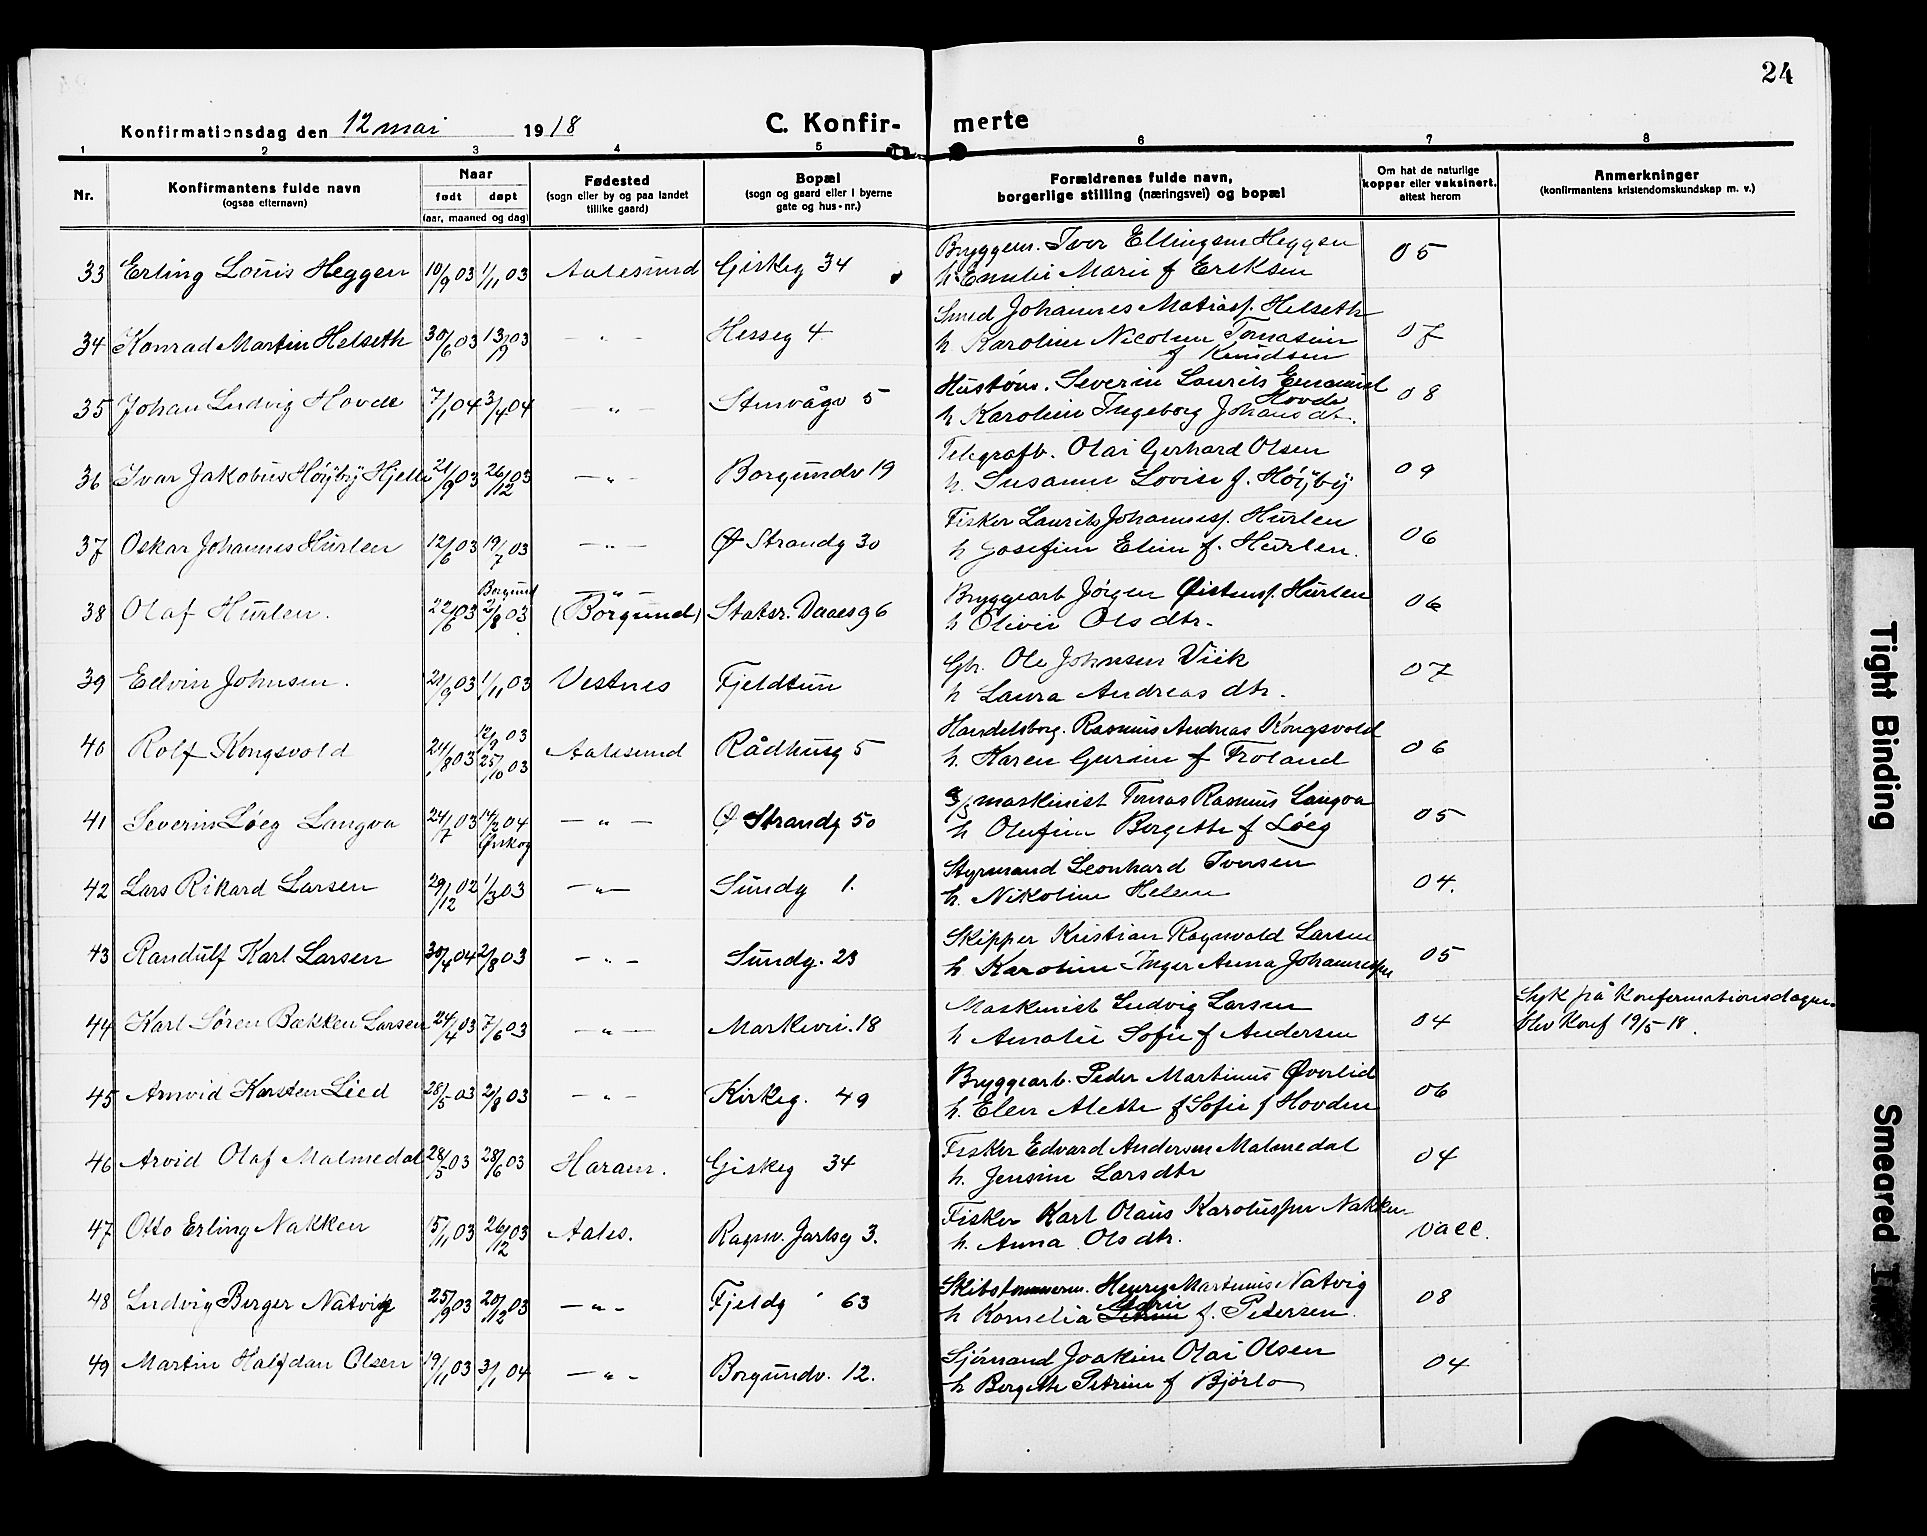 24
Konfirmationsdag den 12 mai 1918 C. Konfir- merte
1 2 3 4 5 6 7 8
Nr. Konfirmantens fulde navn (ogsaa efternavn) Naar født døpt (aar, maaned og dag) Fødested (sogn eller by og paa landet tillike gaard) Bopæl (sogn og gaard eller i byerne gate og hus-nr.) Forældrenes fulde navn, borgerlige stilling (næringsvei) og bopæl Om hat de naturlige kopper eller vaksinert. attest herom Anmerkninger (konfirmantens kristendomskundskap m. v.)
33 Erling Louis Heggen 10/9 03 1/11 03 Aalesund Giskeg 34 Bryggem. Iver Ellingsen Heggen 05
h. Emilie Marie f Eriksen
34 Konrad Martin Helseth 30/6 03 13/9 03 — „ — Hesseg 4 Smed Johannes Matiasf. Helseth 07
h Karoline Nicoline Tomasine
f Knudsen
35 Johan Ludvig Hovde 7/1 04 3/4 04 — „ — Storvågv 5 Hustøm. Severin Laurits Emanuel 08
Hovde
h Karoline Ingeborg Johansdt.
36 Ivar Jakobus Höÿbÿ Hjelle 21/9 03 26/12 03 — „ — Borgundv 19 Telegrafb. Olai Gerhard Olsen 09
h. Susanne Lovise f. Höÿbÿ
37 Oskar Johannes Hurlen 12/6 03 19/7 03 — „ — Ø Strandg 30 Fisker Laurits Johannesf. Hurlen 06
h Josefine Eline f. Hurlen.
Borgund — „ —
38 Olaf Hurlen. 22/6 03 2/8 03 (Borgund) Statsr. Daaesg 6 Bryggearb Jörgen Øistensf. Hurlen 06
h Olivie Olsdtr.
39 Edvin Johnsen. 21/9 03 1/11 03 Vestnes Fjeldtun Gbr. Ole Johnsen Viik 07
h Laura Andreasdtr.
12/9 03
40 Rolf Kongsvold 21/8 03 25/10 03 Aalesund Rådhusg 5 Handelsborg. Rasmus Andreas Kongsvold 06
h. Karen Gurine f Froland
41 Severin Løeg Langva 24/7 03 14/2 04 — „ — Ø Strandg 50 maskinist Tomas Rasmus Langva 05
Ørskog h Olufine Bergette f Løeg
42 Lars Rikard Larsen 29/12 02 1/3 03 — „ — Sundg 1. Styrmand Leonhard Iversen 04.
h. Nikoline Helene
43 Randulf Karl Larsen 30/4 04 2/8 03 — „ — Sundg. 23 Skipper Kristian Ragnvald Larsen 05
h Karoline Inger Anna Johannessen
44 Karl Søren Bakken Larsen 24/4 03 7/6 03 — „ — Markevei. 18 Maskinist Ludvig Larsen 04 Syk på konfirmationsdagen
h Amalie Sofie f Andersen blev konf 19/5-18.
45 Arnvid Karsten Lied 28/5 03 2/8 03 — „ — Kirkeg. 49 Bryggearb. Peder Martinus Øverlid 06
h. Elen Alette f Sofie f Hovden
46 Arvid Olaf Malmedal 28/5 03 28/6 03 Haram. Giskeg 34 Fisker Edvard Andersen Malmedal 04
h. Jensine Larsdtr
47 Otto Erling Nakken 15/11 03 26/12 03 Aales. Ragnv. Jarlsg 3. Fisker Karl Olaus Karolussen Nakken vacc.
h. Anna Olsdtr.
48 Ludvig Berger Natvig 25/9 03 20/12 03 — „ — Fjeldg 63 Skibstømmerm. Henry Martinus Natvig 08
Marie
h Kornelia f. Pedersen
49 Martin Halfdan Olsen 19/11 03 3/1 04 — „ — Borgundv. 12. Sjömand Joakim Olai Olsen 04
h Bergette Petrine f Bjørlo
Tight Binding
Smeared